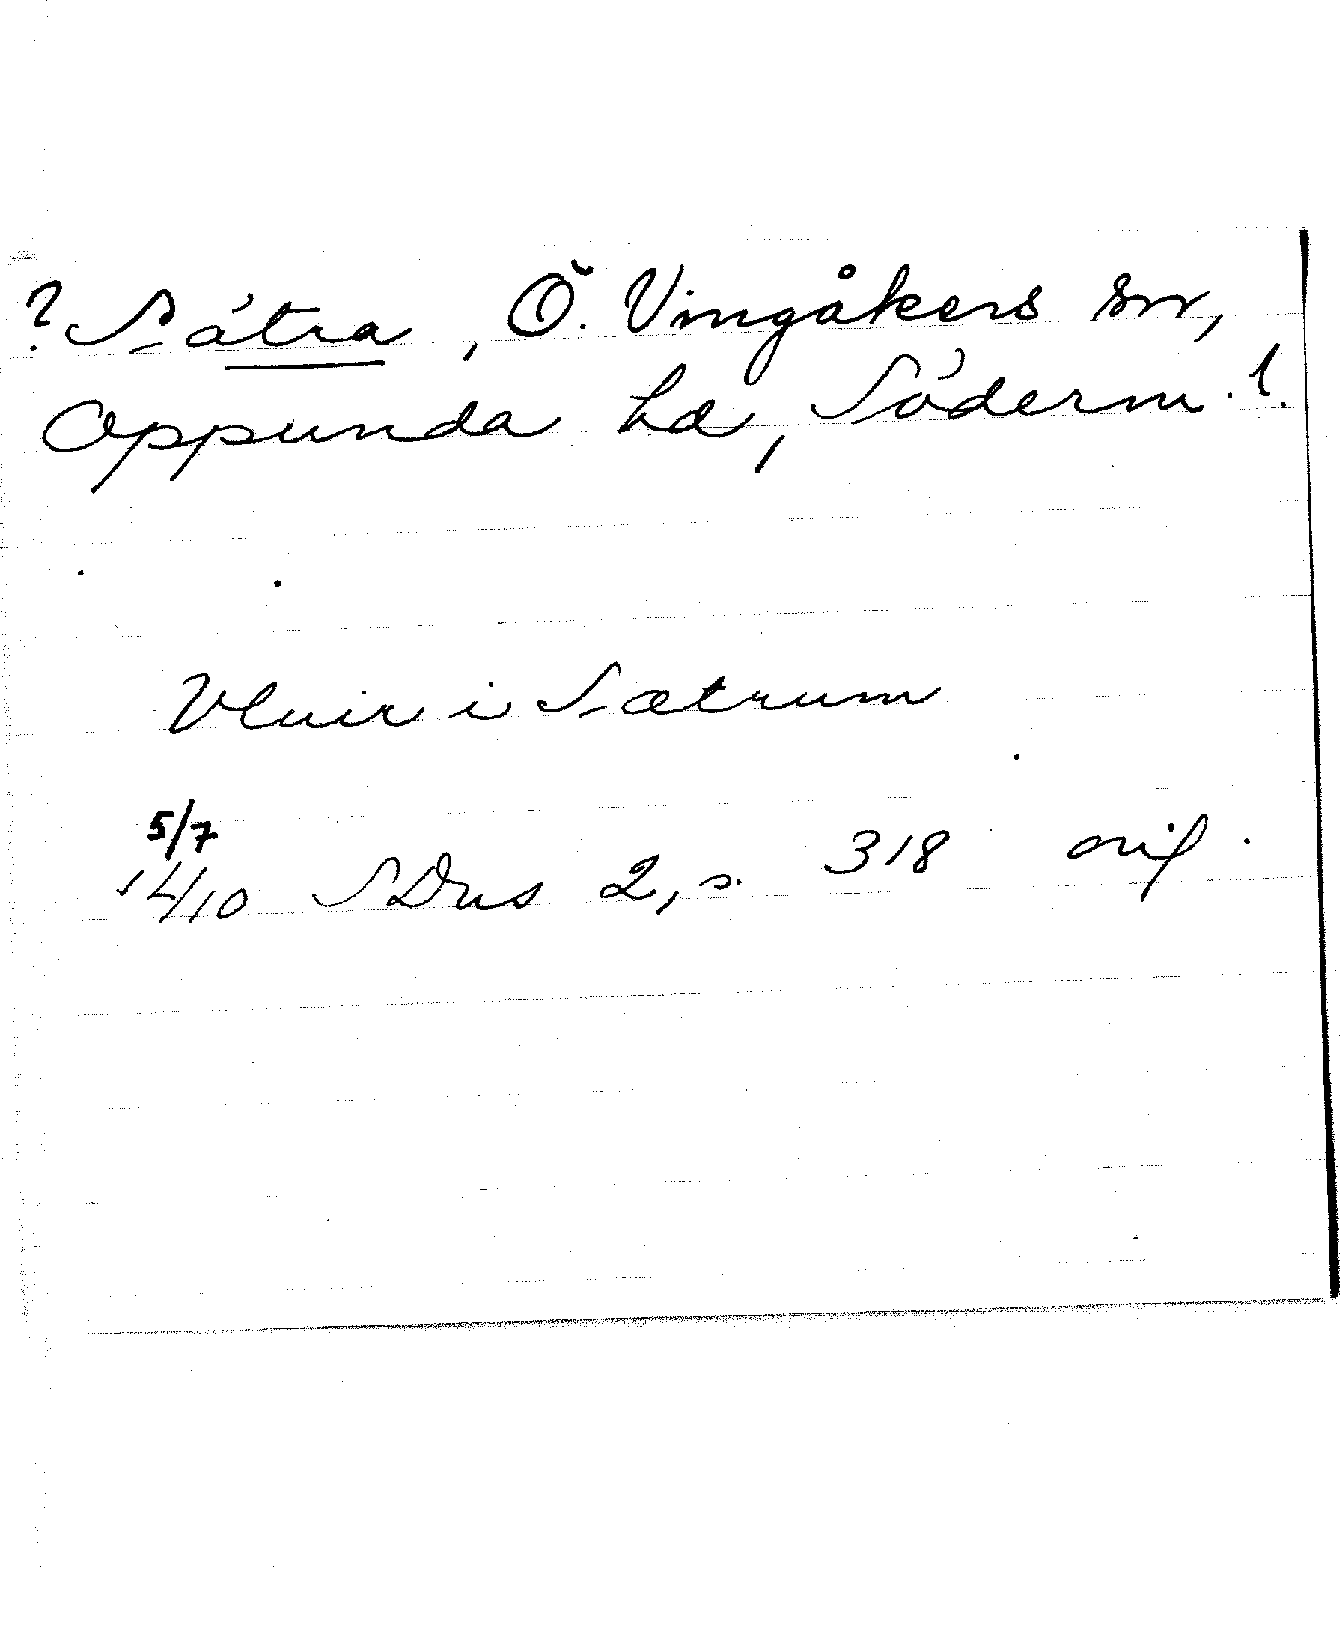 ? Sätra, Ö. Vingåkers sn,
Oppunda hd, Söderm. l.
Vluir i Sætrum
5/7
1410 SDns 2, s. 318 orig.